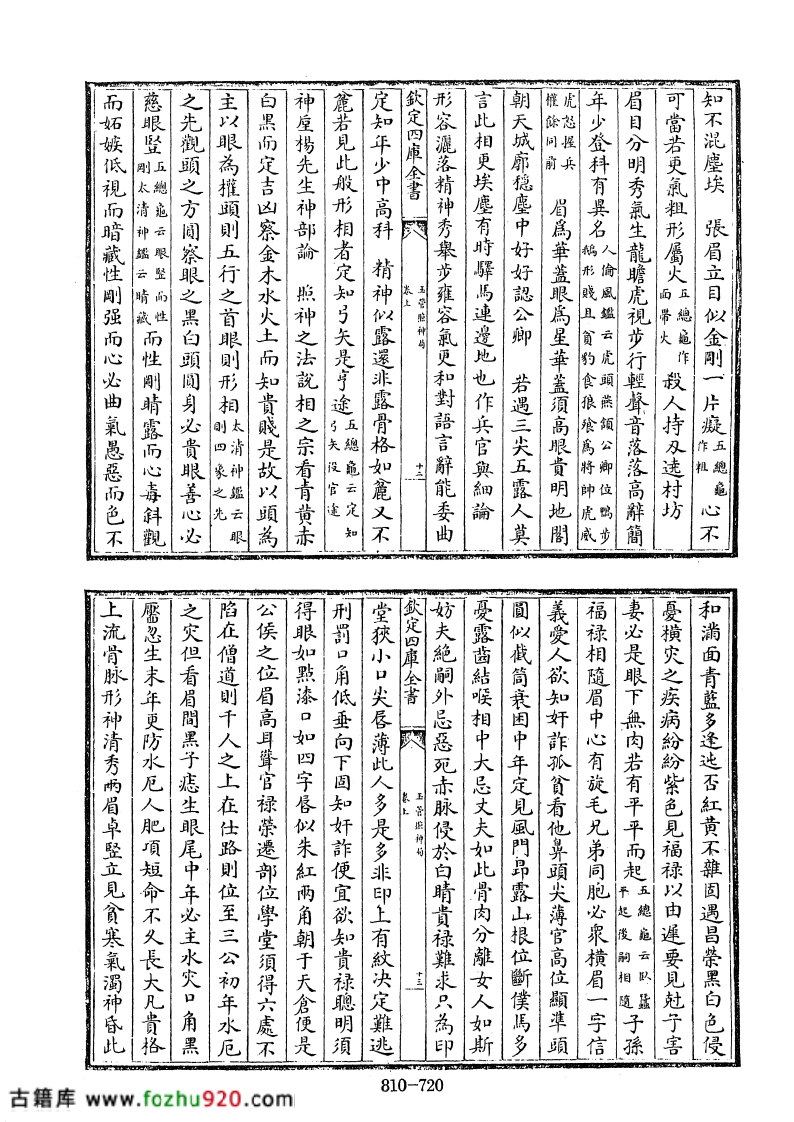 知不混塵埃　張眉立目似金剛一片癡五總龜作粗心不
可當若更氣粗形屬火五總龜作面帶火殺人持刄遶村坊
眉目分明秀氣生龍瞻虎視步行輕聲音落落高辭簡
年少登科有異名人倫風鑑云虎頭燕頷公卿位鴨步鵝形賤且貧豹食狼飡為將帥虎威
虎怒握兵權餘同前　眉為華蓋眼為星華蓋須高眼貴明地閣
朝天城廓穩塵中好好認公卿　若遇三尖五露人莫
言此相更埃塵有時驛馬連邊地也作兵官與細論
形容灑落精神秀舉步雍容氣更和對語言辭能委曲
欽定四庫全書
玉管照神局
卷上
十二
定知年少中高科　精神似露還非露骨格如麄又不
麄若見此般形相者定知弓矢是亨途五總龜云定知弓矢役官途
神屋楊先生神部論　照神之法說相之宗看青黃赤
白黑而定吉凶察金木水火土而知貴賤是故以頭為
主以眼為權頭則五行之首眼則形相太清神鑑云眼則四象之先
之先觀頭之方圓察眼之黑白頭圓身必貴眼善心必
慈眼豎五總龜云眼豎而性剛太清神鑑云睛藏而性剛睛露而心毒斜觀
而妬嫉低視而暗藏性剛强而心必曲氣愚惡而色不
和滿面青藍多逢迍否紅黃不雜固遇昌榮黑白色侵
憂橫灾之疾病紛紛紫色見福禄以由遲要見尅子害
妻必是眼下無肉若有平平而起五總龜云卧蠶平起後嗣相隨子孫
福禄相隨眉中心有旋毛兄弟同胞必衆橫眉一字信
義愛人欲知奸詐孤貧看他鼻頭尖薄官高位顯準頭
圓似截筒衰困中年定見風門昂露山根位斷僕馬多
憂露齒結喉相中大忌丈夫如此骨肉分離女人如斯
妨夫絶嗣外忌惡死赤脉侵於白睛貴禄難求只為印
欽定四庫全書
玉管照神局
卷上
十三
堂狹小口尖唇薄此人多是多非印上有紋決定難逃
刑罰口角低垂向下固知奸詐便宜欲知貴禄聰明須
得眼如點漆口如四字唇似朱紅兩角朝于天倉便是
公侯之位眉高耳聳官禄榮遷部位學堂須得六處不
陷在僧道則千人之上在仕路則位至三公初年水厄
之灾但看眉間黑子痣生眼尾中年必主水灾口角黑
靨忽生末年更防水厄人肥項短命不久長大凡貴格
上流骨脉形神清秀兩眉卓豎立見貧寒氣濁神昏此
810-720
古籍库 www.fozhu920.com